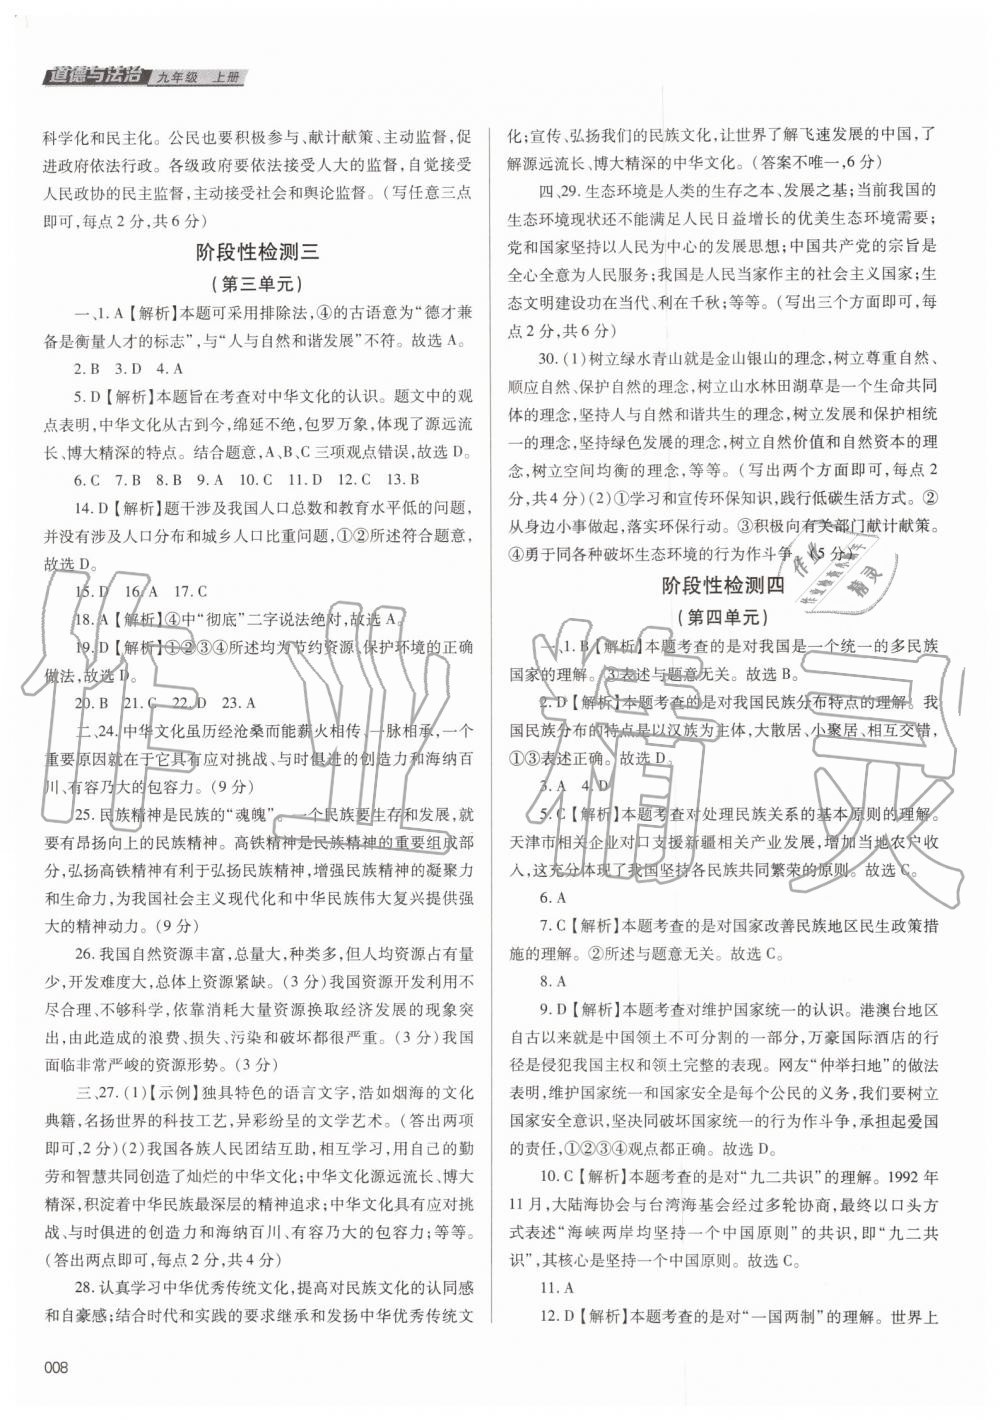 道德与法治 九年级 上册
科学化和民主化。公民也要积极参与、献计献策、主动监督,促
进政府依法行政。各级政府要依法接受人大的监督,自觉接受
人民政协的民主监督,主动接受社会和舆论监督。(写任意三点
即可,每点2分,共6分)
阶段性检测三
(第三单元)
一、1. A【解析】本题可采用排除法,④的古语意为“德才兼
备是衡量人才的标志”,与“人与自然和谐发展”不符。故选A。
2. B 3. D 4. A
5. D【解析】本题旨在考查对中华文化的认识。题文中的观
点表明,中华文化从古到今,绵延不绝,包罗万象,体现了源远流
长、博大精深的特点。结合题意,A、B、C三项观点错误,故选D。
6. C 7. B 8. D 9. A 10. C 11. D 12. C 13. B
14. D【解析】题干涉及我国人口总数和教育水平低的问题,
并没有涉及人口分布和城乡人口比重问题,①②所述符合题意,
故选D。
15. D 16. A 17. C
18. A【解析】④中“彻底”二字说法绝对,故选A。
19. D【解析】①②③④所述均为节约资源、保护环境的正确
做法,故选D。
20. B 21. C 22. D 23. A
二、24. 中华文化虽历经沧桑而能薪火相传、一脉相承,一个
重要原因就在于它具有应对挑战、与时俱进的创造力和海纳百
川、有容乃大的包容力。(9分)
25. 民族精神是民族的“魂魄”。一个民族要生存和发展,就
要有昂扬向上的民族精神。高铁精神是民族精神的重要组成部
分,弘扬高铁精神有利于弘扬民族精神,增强民族精神的凝聚力
和生命力,为我国社会主义现代化和中华民族伟大复兴提供强
大的精神动力。(9分)
26. 我国自然资源丰富,总量大,种类多,但人均资源占有量
少,开发难度大,总体上资源紧缺。(3分)我国资源开发利用不
尽合理、不够科学,依靠消耗大量资源换取经济发展的现象突
出,由此造成的浪费、损失、污染和破坏都很严重。(3分)我国
面临非常严峻的资源形势。(3分)
三、27. (1)【示例】独具特色的语言文字,浩如烟海的文化
典籍,名扬世界的科技工艺,异彩纷呈的文学艺术。(答出两项
即可,2分)(2)我国各族人民团结互助,相互学习,用自己的勤
劳和智慧共同创造了灿烂的中华文化;中华文化源远流长、博大
精深,积淀着中华民族最深层的精神追求;中华文化具有应对挑
战、与时俱进的创造力和海纳百川、有容乃大的包容力;等等。
(答出两点即可,每点2分,共4分)
28. 认真学习中华优秀传统文化,提高对民族文化的认同感
和自豪感;结合时代和实践的要求继承和发扬中华优秀传统文
008
化;宣传、弘扬我们的民族文化,让世界了解飞速发展的中国,了
解源远流长、博大精深的中华文化。(答案不唯一,6分)
四、29. 生态环境是人类的生存之本、发展之基;当前我国的
生态环境现状还不能满足人民日益增长的优美生态环境需要;
党和国家坚持以人民为中心的发展思想;中国共产党的宗旨是
全心全意为人民服务;我国是人民当家作主的社会主义国家;生
态文明建设功在当代、利在千秋;等等。(写出三个方面即可,每
点2分,共6分)
30. (1)树立绿水青山就是金山银山的理念,树立尊重自然、
顺应自然、保护自然的理念,树立山水林田湖草是一个生命共同
体的理念,坚持人与自然和谐共生的理念,树立发展和保护相统
一的理念,坚持绿色发展的理念,树立自然价值和自然资本的理
念,树立空间均衡的理念,等等。(写出两个方面即可,每点2
分,共4分)(2)①学习和宣传环保知识,践行低碳生活方式。②
从身边小事做起,落实环保行动。③积极向有关部门献计献策。
④勇于同各种破坏生态环境的行为作斗争。(5分)
阶段性检测四
(第四单元)
一、1. B【解析】本题考查的是对我国是一个统一的多民族
国家的理解。③表述与题意无关。故选B。
2. D【解析】本题考查的是对我国民族分布特点的理解。我
国民族分布的特点是以汉族为主体,大散居、小聚居、相互交错,
①③表述正确。故选D。
3. A 4. D
5. C【解析】本题考查对处理民族关系的基本原则的理解。
天津市相关企业对口支援新疆相关产业发展,增加当地农户收
入,这充分体现了我国坚持各民族共同繁荣的原则。故选C。
6. A
7. C【解析】本题考查的是对国家改善民族地区民生政策措
施的理解。②所述与题意无关。故选C。
8. A
9. D【解析】本题考查对维护国家统一的认识。港澳台地区
自古以来就是中国领土不可分割的一部分,万豪国际酒店的行
径是侵犯我国主权和领土完整的表现。网友“仲举扫地”的做法
表明,维护国家统一和国家安全是每个公民的义务,我们要树立
国家安全意识,坚决同破坏国家统一的行为作斗争,承担起爱国
的责任,①②③④观点都正确。故选D。
10. C【解析】本题考查的是对“九二共识”的理解。1992年
11月,大陆海协会与台湾海基会经过多轮协商,最终以口头方
式表述“海峡两岸均坚持一个中国原则”的共识,即“九二共
识”,其核心是坚持一个中国原则。故选C。
11. A
12. D【解析】本题考查的是对“一国两制”的理解。世界上
作业精灵
作业
精灵